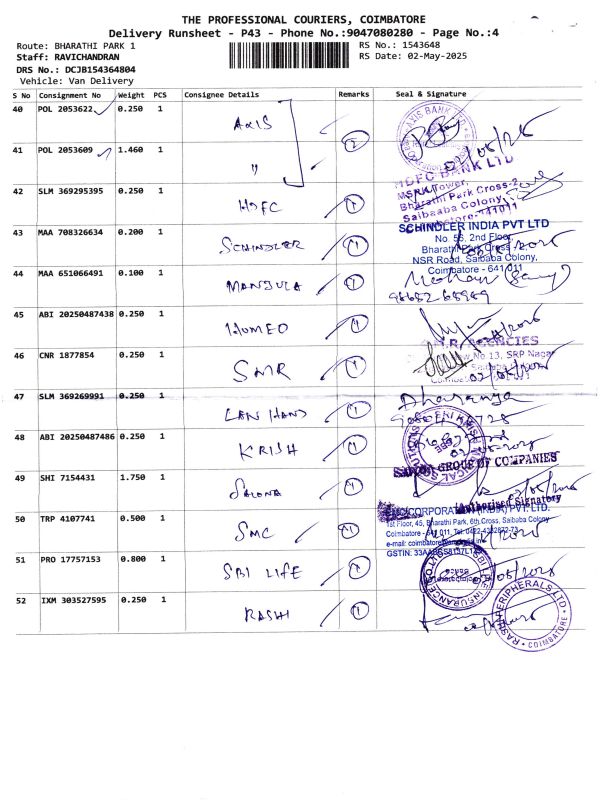 THE PROFESSIONAL COURIERS, COIMBATORE
Delivery Runsheet - P43 - Phone No.:9047080280 - Page No.:4
Route: BHARATHI PARK 1
RS No.: 1543648
Staff: RAVICHANDRAN
RS Date: 02-May-2025
DRS No.: DCJB154364804
Vehicle: Van Delivery
S No Consignment No Weight PCS Consignee Details Remarks Seal & Signature
40 POL 2053622 0.250 1 AXIS
AXIS BANK LTD
2
41 POL 2053609 1.460 1 "
HDFC BANK LTD
42 SLM 369295395 0.250 1 HDFC 1
MSRK Tower,
Bharathi Park Cross-2
Saibaba Colony,
Coimbatore-141011
43 MAA 708326634 0.200 1 SCHINDLER 1
SCHINDLER INDIA PVT LTD
No. 56, 2nd Floor,
Bharathi Park Cross
NSR Road, Saibaba Colony,
Coimbatore - 641 011
44 MAA 651066491 0.100 1 MANJULA 1
45 ABI 20250487438 0.250 1 HOMEO 1
46 CNR 1877854 0.250 1 SMR 1
AGENCIES
No 13, SRP Nagar
47 SLM 369269991 0.250 1 LAN HAND 1
Dharanya
48 ABI 20250487486 0.250 1 KRISH 1
GROUP OF COMPANIES
49 SHI 7154431 1.750 1 SALONA 1
Authorised Signatory
50 TRP 4107741 0.500 1 SMC 1
SMC CORPORATION (INDIA) PVT. LTD.
1st Floor, 45, Bharathi Park, 6th Cross, Saibaba Colony
Coimbatore - 641 011, Tel:
e-mail:
GSTIN:
51 PRO 17757153 0.800 1 SBI LIFE 1
SBI LIFE INSURANCE CO. LTD
52 IXM 303527595 0.250 1 RASHI 1
RASHI PERIPHERALS LTD.
COIMBATORE